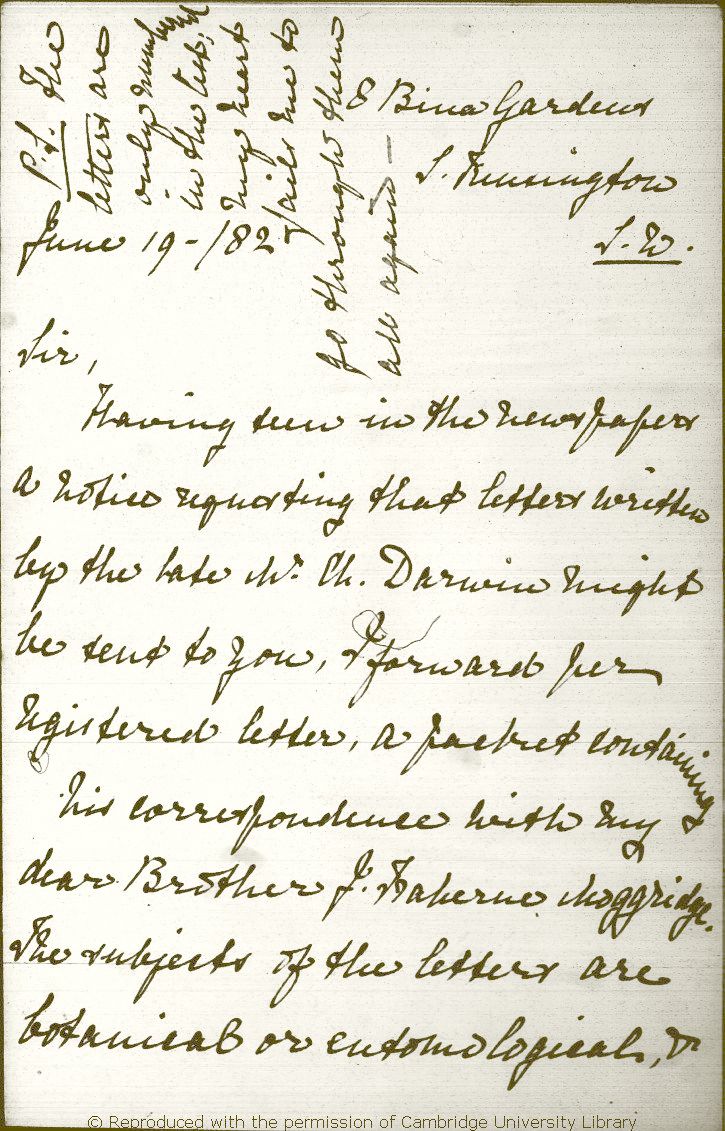 P.S. The
letters are
only numbered
in the list;
my heart
fails me to
go through them
all again —
8 Bina Gardens
S. Kensington
S. W.
June 19 - /82
Sir,
Having seen in the newspapers
a notice requesting that letters written
by the late Mr. Ch. Darwin might
be sent to you, I forward per
registered letter, a packet containing
his correspondence with my
dear Brother J. Traherne Moggridge.
The subjects of the letters are
botanical or entomological, &
© Reproduced with the permission of Cambridge University Library